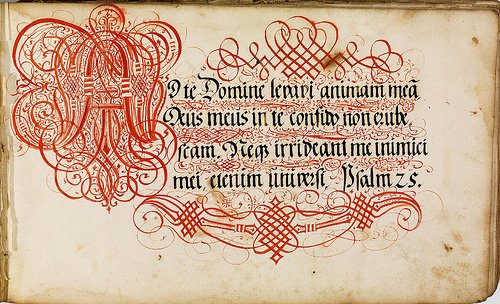 AD te Domine levavi animam meā
Deus meus in te confido non erube
scam. Neq3 irrideant me inimici
mei, etenim universi. Psalm 25.